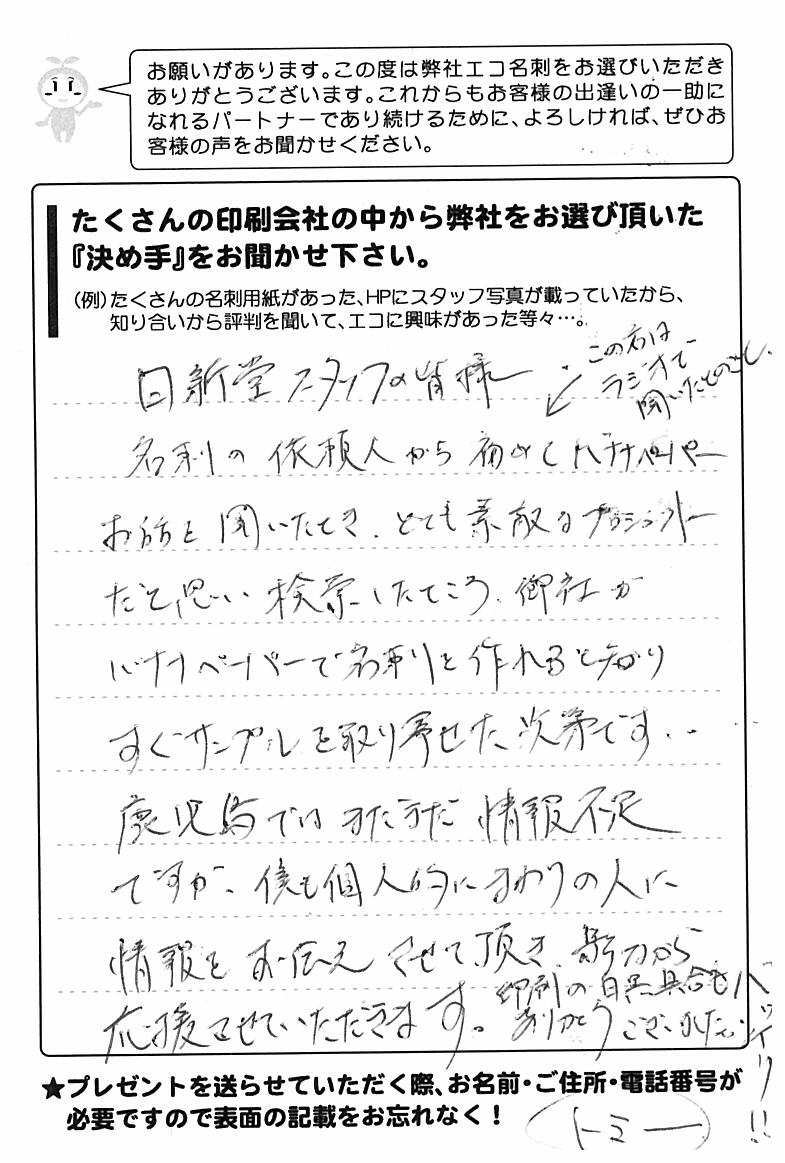 お願いがあります。この度は弊社エコ名刺をお選びいただき
ありがとうございます。これからもお客様の出逢いの一助に
なれるパートナーであり続けるために、よろしければ、ぜひお
客様の声をお聞かせください。
たくさんの印刷会社の中から弊社をお選び頂いた
『決め手』をお聞かせ下さい。
(例)たくさんの名刺用紙があった、HPにスタッフ写真が載っていたから、
知り合いから評判を聞いて、エコに興味があった等々…。
日新堂スタッフの皆様
この方は
ラジオで
聞いたとのこと。
名刺の依頼人から初めてバナナペーパー
お話を聞いたとき、とても素敵なプロジェクト
だと思い検索したところ、御社が
バナナペーパーで名刺を作れると知り
すぐサンプルを取り寄せた次第です。
鹿児島ではまだまだ情報不足
ですが、僕も個人的にまわりの人に
情報をお伝えさせて頂き、影ながら
応援させていただきます。
印刷の白黒具合もバッチリ!!
ありがとうございました。
★プレゼントを送らせていただく際、お名前・ご住所・電話番号が
必要ですので表面の記載をお忘れなく!
トミー